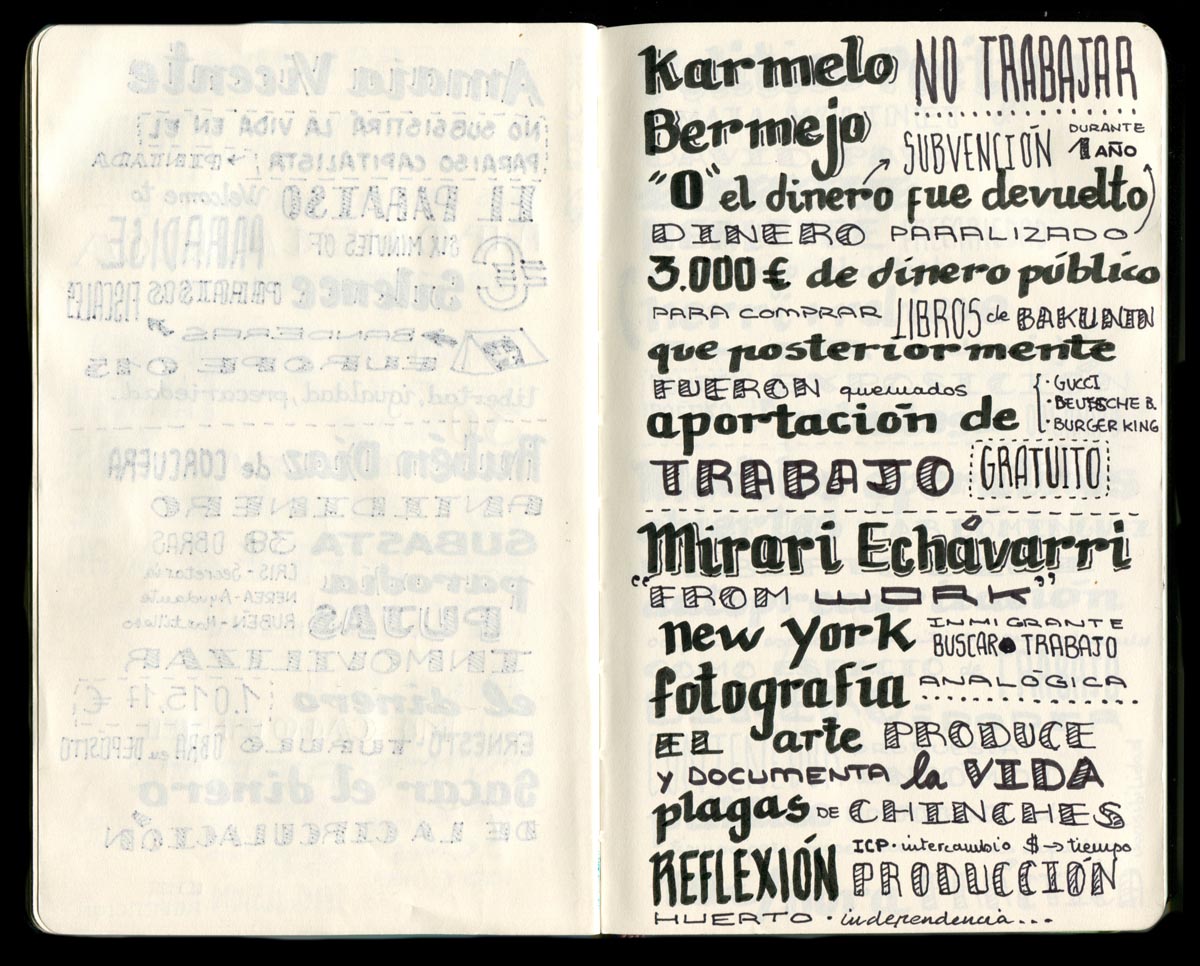 Karmelo NO TRABAJAR
Bermejo SUBVENCIÓN DURANTE 1 AÑO
"O" el dinero fue devuelto
DINERO PARALIZADO
3.000 € de dinero público
PARA COMPRAR LIBROS de BAKUNIN
que posteriormente
FUERON quemados
· GUCCI
· DEUTSCHE B.
· BURGER KING
aportación de
TRABAJO GRATUITO
Mirari Echávarri
"FROM WORK"
new york INMIGRANTE
BUSCAR TRABAJO
fotografía ANALÓGICA
EL arte PRODUCE
y DOCUMENTA la VIDA
plagas DE CHINCHES
REFLEXIÓN ICP · intercambio $ → tiempo
PRODUCCIÓN
HUERTO · independencia...